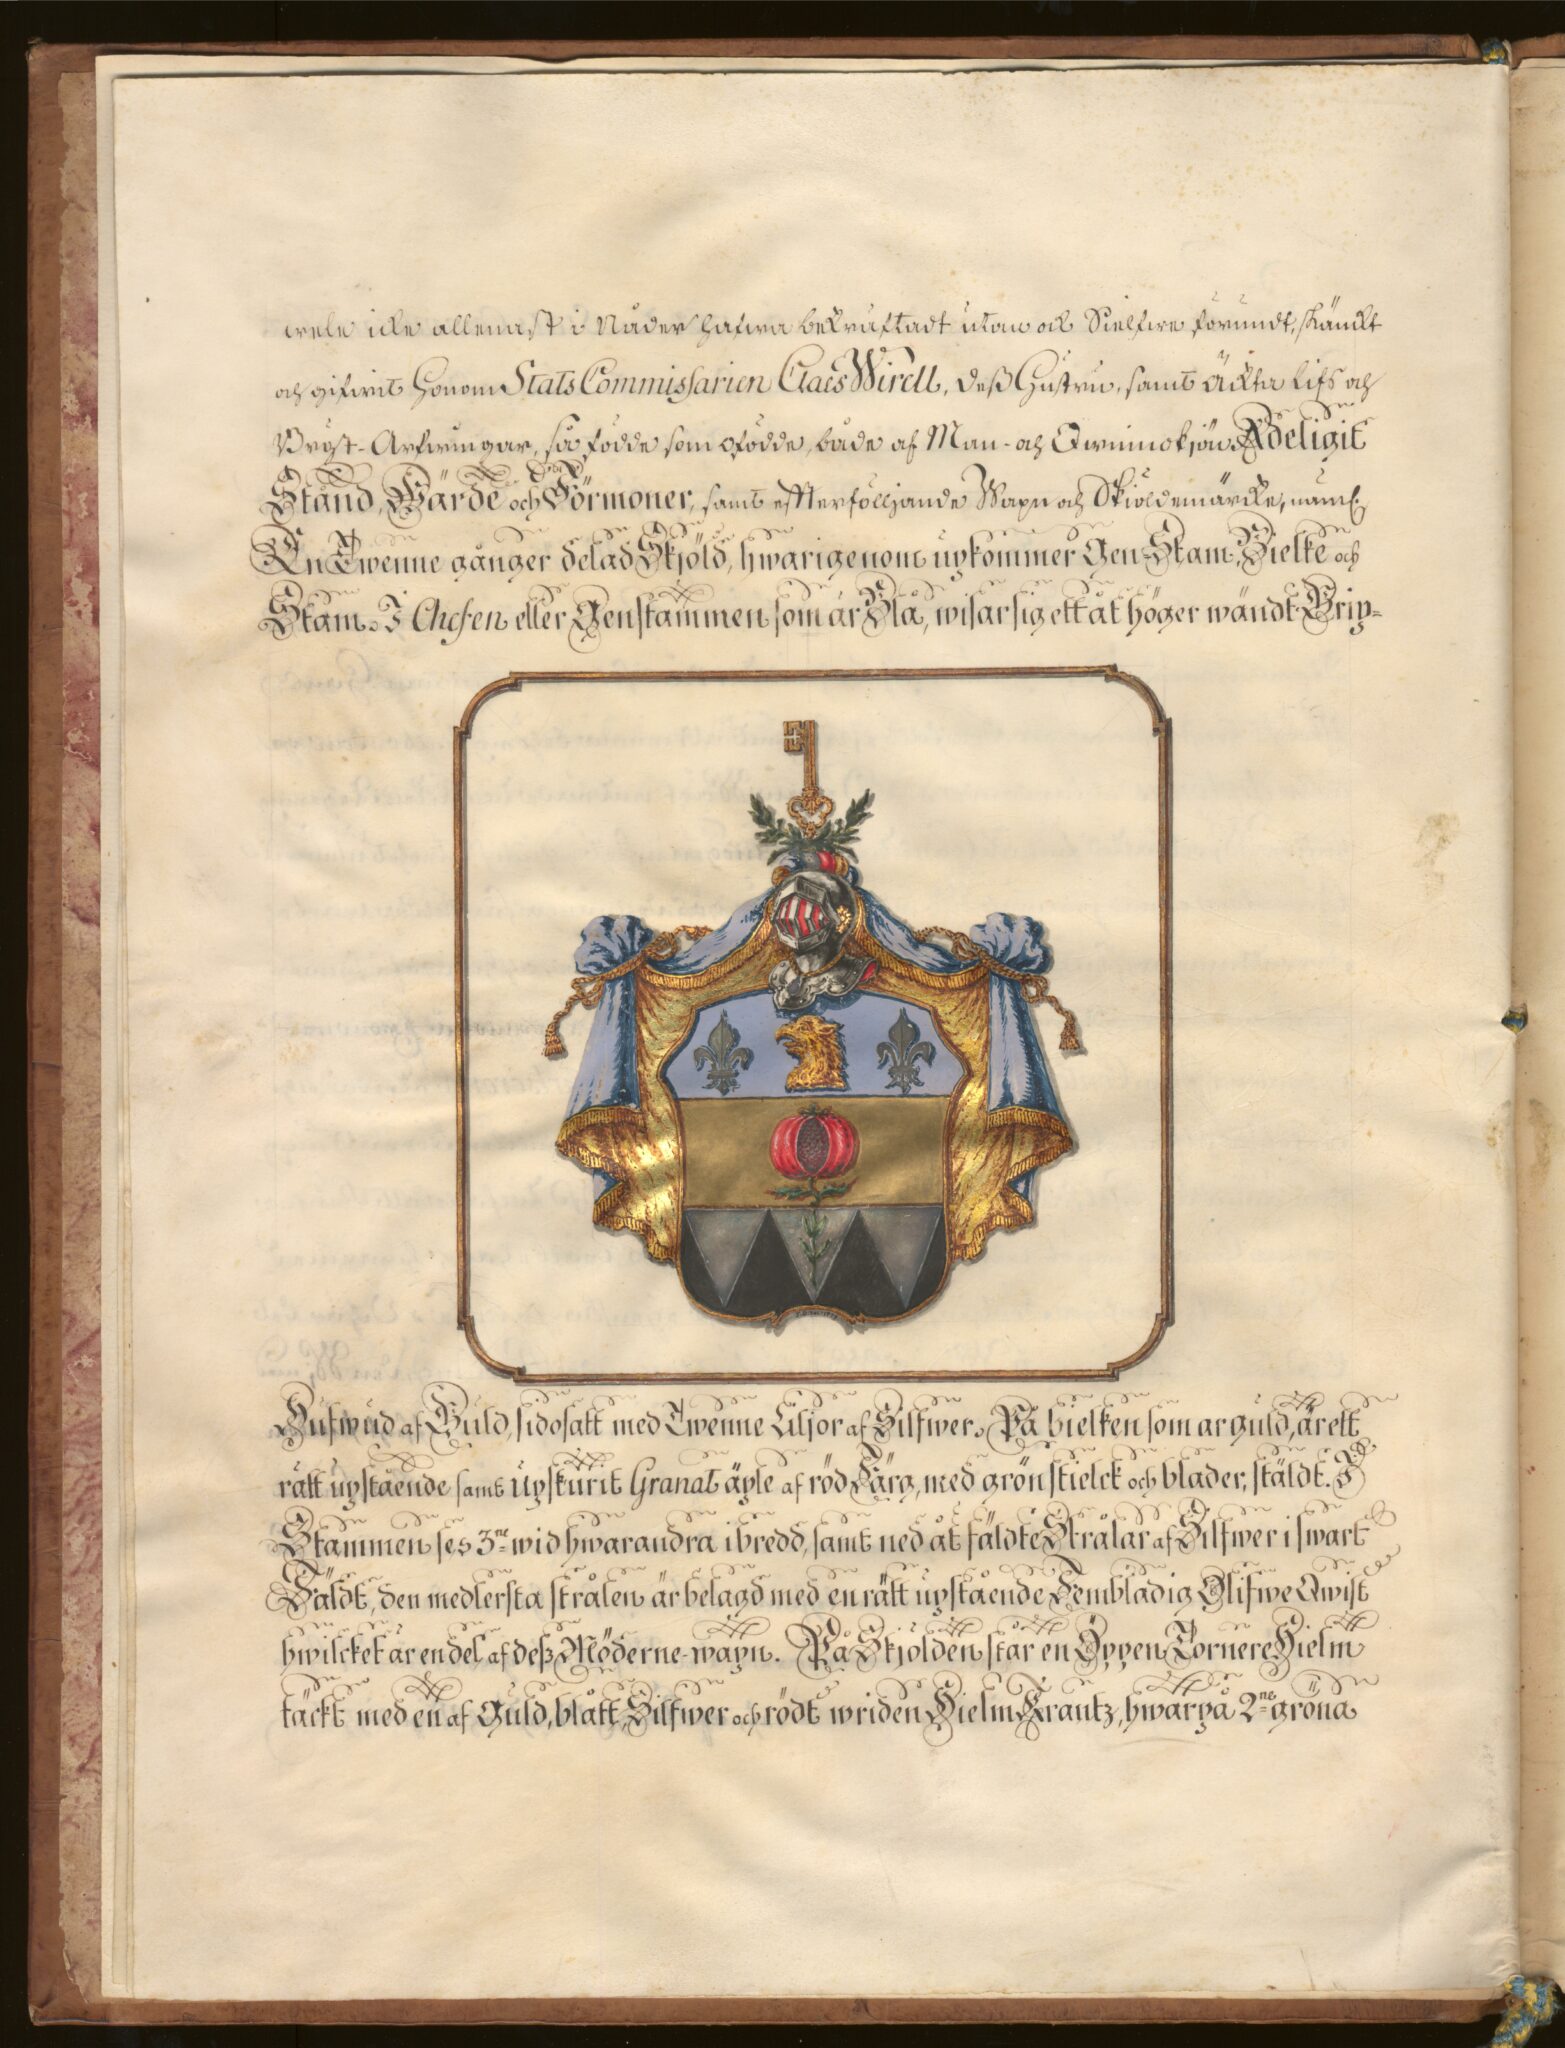 wele icke allenast i Nåder hafwa bekräftadt utan ock Sielfwe förundt, skänckt
och gifwit honom Stats Commissarien Claes Wirell, deß Hustru, samt ächta lifs och
Bröst-Arfwingar, så födde som ofödde, både af Man- och Qwinnokjön, Adeligit
Stånd, Wärde och Förmoner, samt effterfölljande Wapn och Skiöldemärcke, näml:
En Twenne gånger delad Skjöld, hwarigenom upkommer Gen Stam, Bielke och
Stam. I Chefen eller Genstammen som är Blå, wisar sig ett åt höger wändt Grip=
Hufwud af Guld, sidosatt med Twenne Liljor af Silfwer. På bielken som är guld, är ett
rätt upstående samt upskurit Granat äple af röd Färg, med grön stielck och blader, stäldt. I
Stammen ses 3ne wid hwarandra i bredd, samt ned åt fäldte Strålar af Silfwer i swart
Fäldt, den medlersta strålen är belagd med en rätt upstående Fembladig Olifwe Qwist
hwilcket är en del af deß Möderne-wapn. På Skjölden står en Öppen Tornere Hielm
täckt med en af Guld, blått, Silfwer och rödt wriden Hielm Krantz, hwarpå 2ne gröna